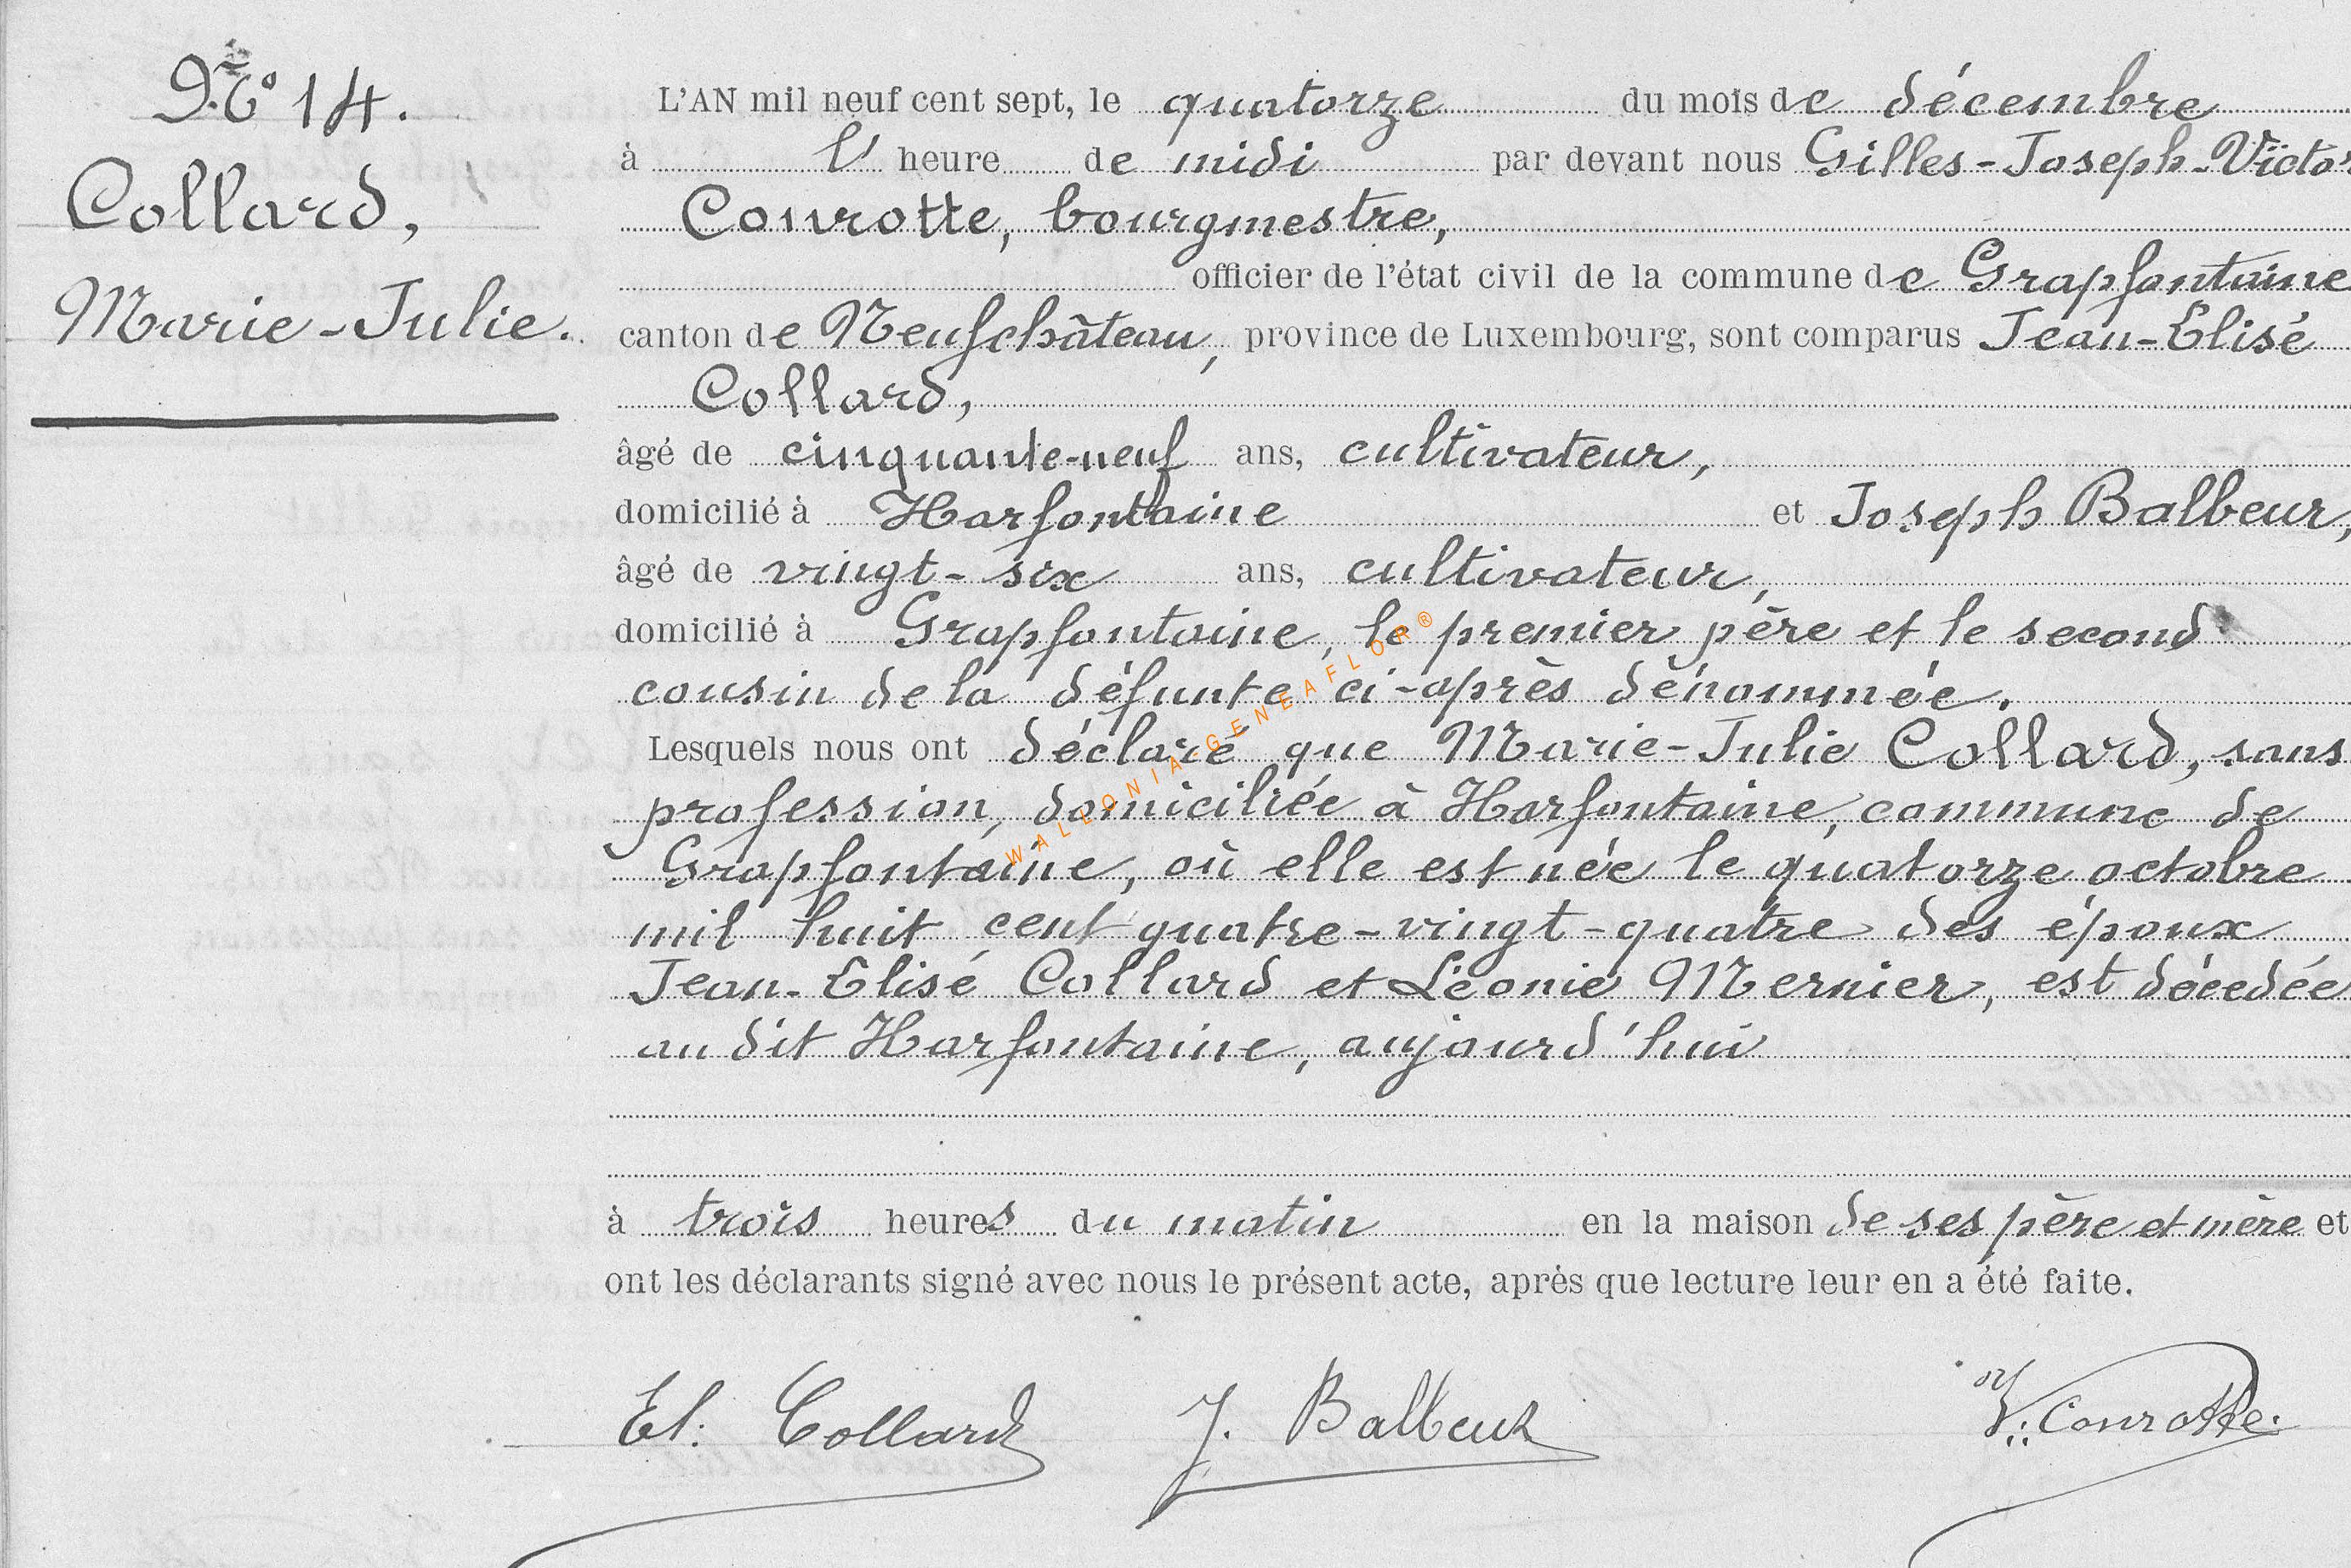 No 14.
Collard,
Marie-Julie.
L'AN mil neuf cent sept, le quatorze du mois de décembre
à l' heure de midi par devant nous Gilles-Joseph-Victor
Conrotte, bourgmestre,
officier de l'état civil de la commune de Grapfontaine
canton de Neufchâteau, province de Luxembourg, sont comparus Jean-Elisé
Collard,
âgé de cinquante-neuf ans, cultivateur,
domicilié à Harfontaine et Joseph Balbeur,
âgé de vingt-six ans, cultivateur,
domicilié à Grapfontaine, le premier père et le second
cousin de la défunte ci-après dénommée.
Lesquels nous ont déclaré que Marie-Julie Collard, sans
profession, domiciliée à Harfontaine, commune de
Grapfontaine, où elle est née le quatorze octobre
mil huit cent quatre-vingt-quatre des époux
Jean-Elisé Collard et Léonie Mernier, est décédée
au dit Harfontaine, aujourd'hui
à trois heures du matin en la maison de ses père et mère et
ont les déclarants signé avec nous le présent acte, après que lecture leur en a été faite.
El. Collard J. Balbeur V. Conrotte
WALLONIA-GENEAFLOR®